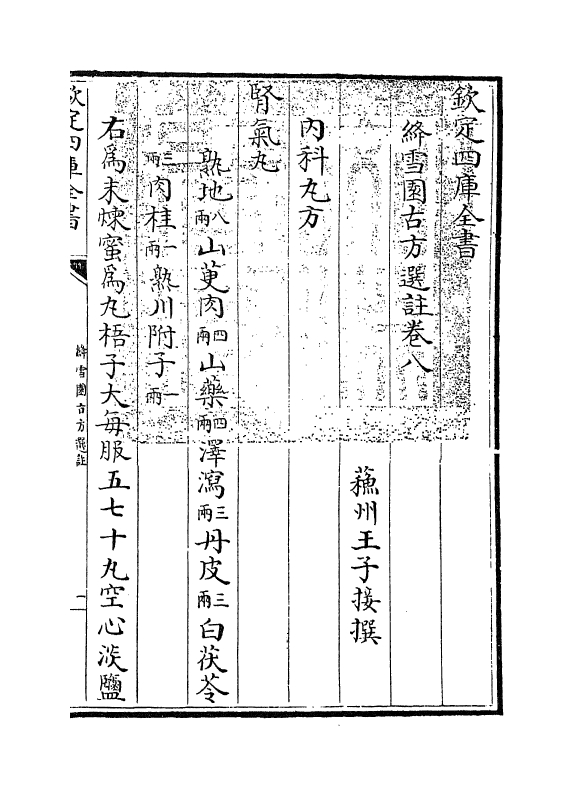 欽定四庫全書
絳雪園古方選註卷八
蘓州王子接撰
內科丸方
腎氣丸
熟地八兩山萸肉四兩山藥四兩澤瀉三兩丹皮三兩白茯苓
三兩肉桂一兩熟川附子一兩
右爲末煉蜜爲丸梧子大每服五七十丸空心淡鹽
欽定四庫全書
絳雪園古方選註
一